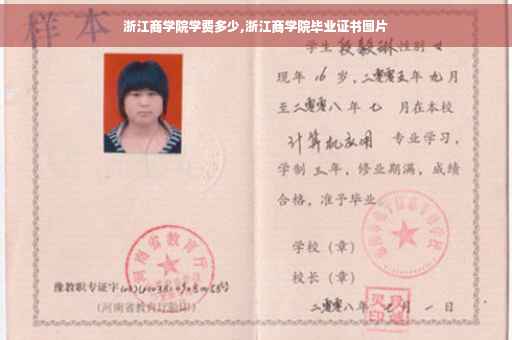 浙江商学院学费多少,浙江商学院毕业证书图片
样本
学生 段毅琳 性别 女
现年 16 岁，二零零五年 九月
至二零零八年 七 月在本校
计算机应用 专业学习，
学制 三 年，修业期满，成绩
合格，准予毕业
学校（章）
校长（章）
二零零八年 七 月 一 日
河南省教育厅
豫教职专证字
（河南省教育厅验印）